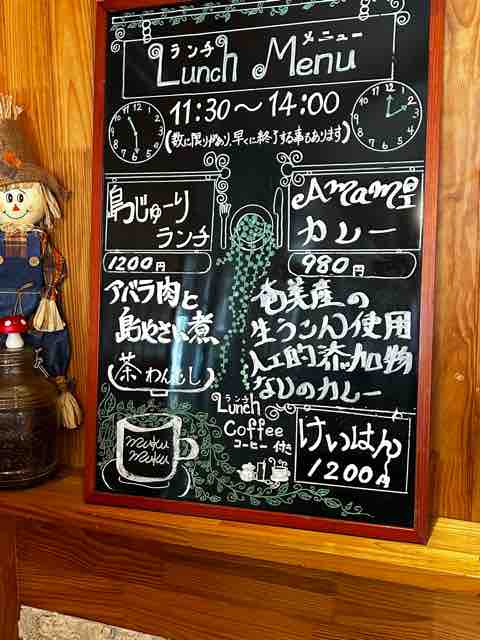 ランチ メニュー
Lunch Menu
11:30～14:00
(数に限りがあり、早くに終了する事もあります)
島っじゅーり
ランチ
1200円
アバラ肉と
島やさい煮
(茶わんむし)
Amami
カレー
980円
奄美産の
生うこん使用
人工的添加物
なしのカレー
ランチ
Lunch
Coffee
コーヒー付き
けいはん
1200円
muku
muku